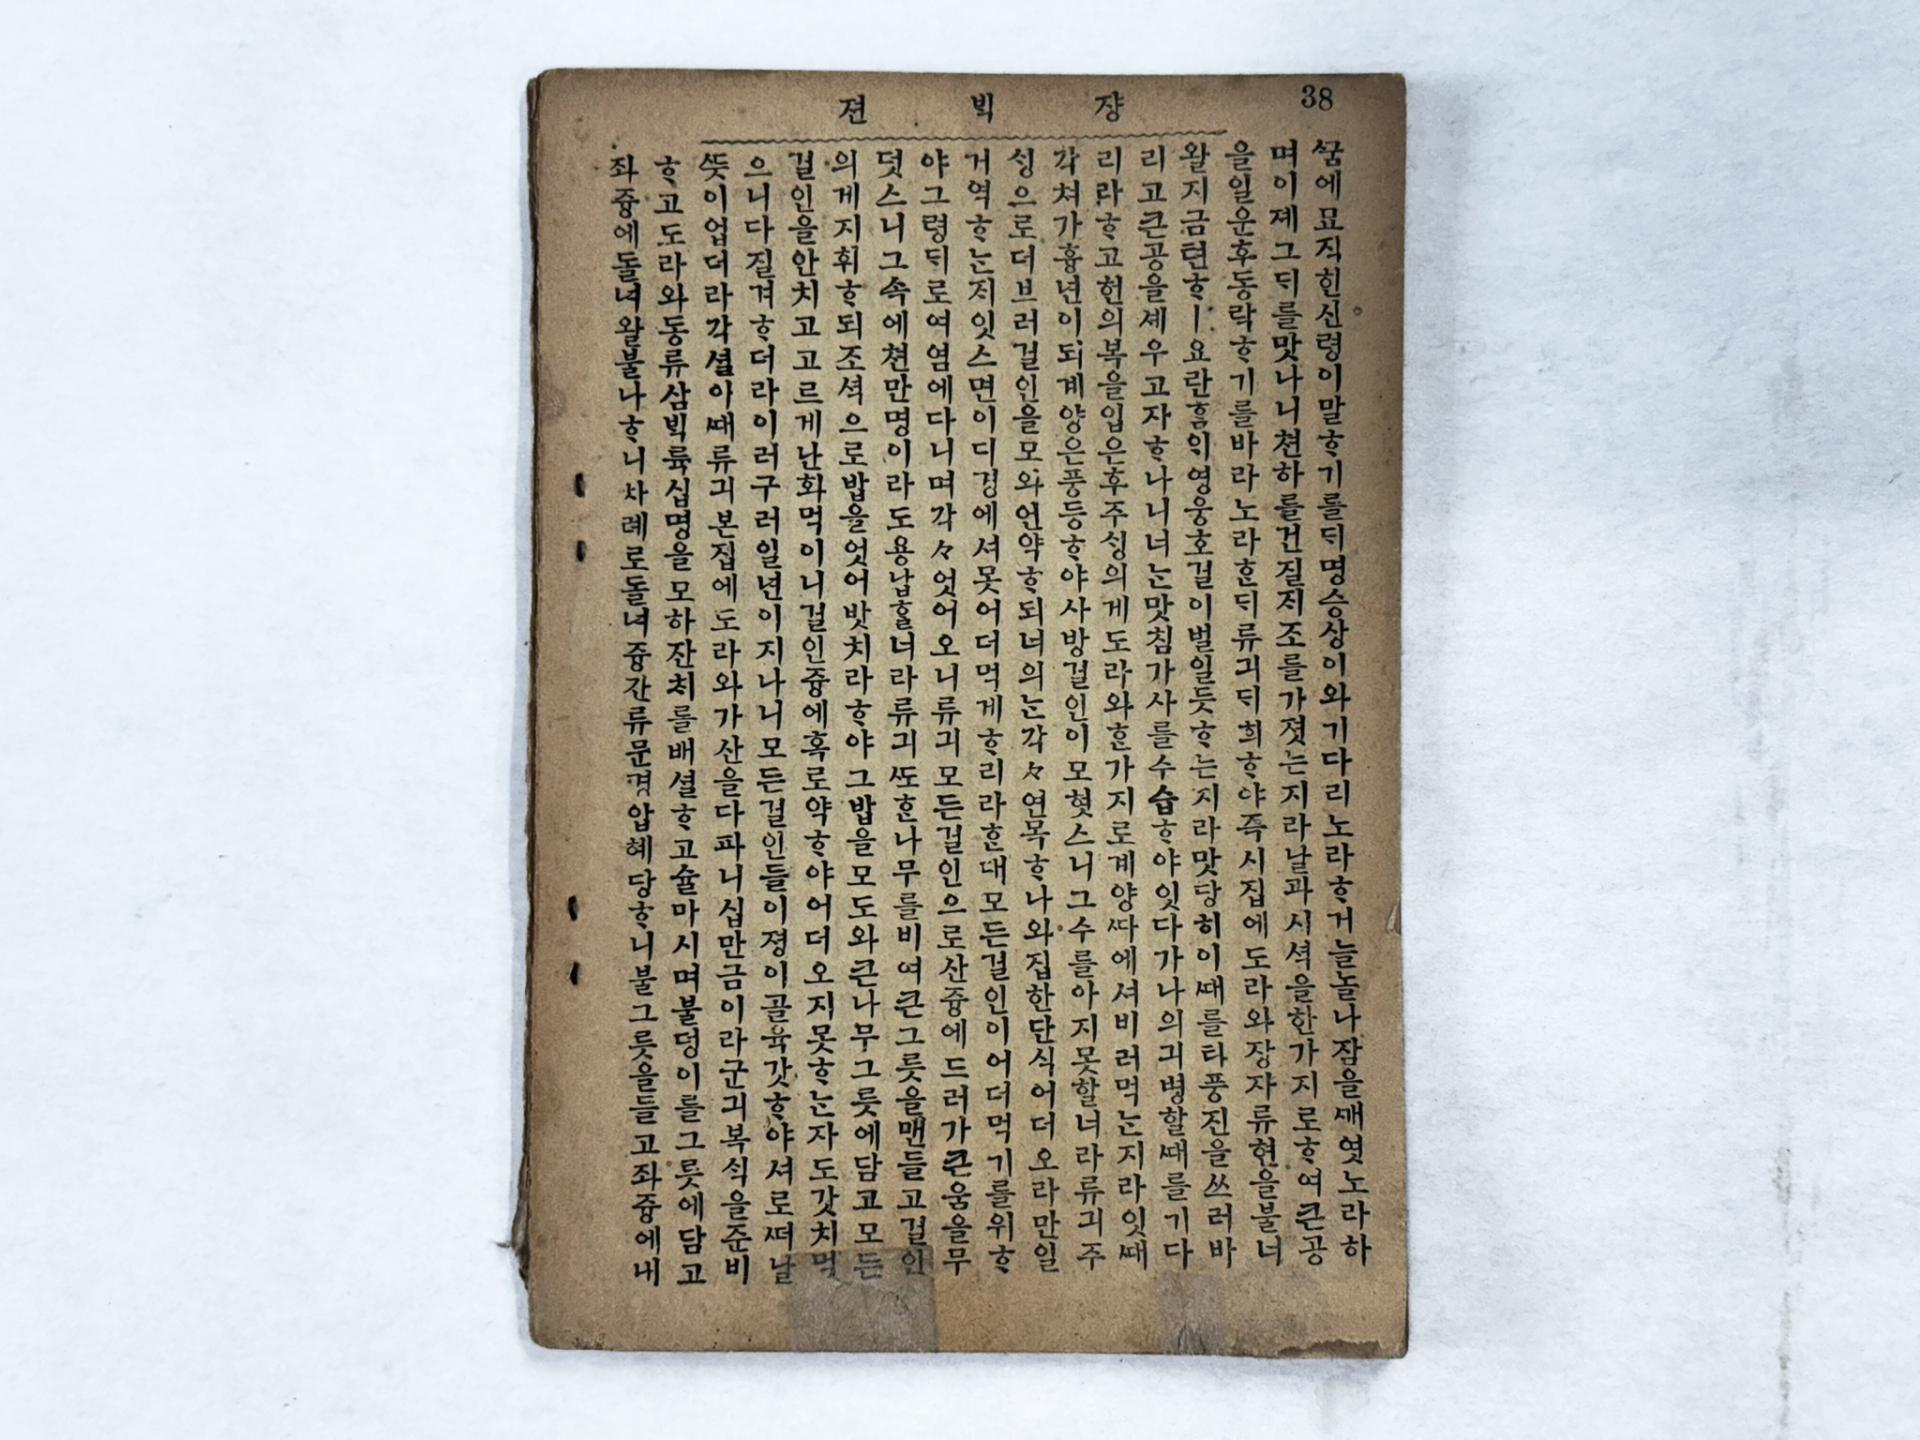 38
쟝ᄇᆡᆨ젼
ᄭᅮᆷ에묘직힌신령이말ᄒᆞ기를ᄃᆡ명승상이와기다리노라ᄒᆞ거늘놀나잠을ᄭᆡ엿노라하
며이졔그ᄃᆡ를맛나니쳔하를건질ᄌᆡ조를가졋는지라날과시셔을한가지로ᄒᆞ여큰공
을일운후동락ᄒᆞ기를바라노라ᄒᆞᆫᄃᆡ류긔ᄃᆡ희ᄒᆞ야즉시집에도라와장자류현을불너
왈지금텬ᄒᆞㅣ요란ᄒᆞᆷᄋᆡ영웅호걸이벌일듯ᄒᆞ는지라맛당히이ᄯᅢ를타풍진을쓰러바
리고큰공을셰우고자ᄒᆞ나니너ᄂᆞᆫ맛침가사를수습ᄒᆞ야잇다가나의긔병할ᄯᅢ를기다
리라ᄒᆞ고현의복을입은후주ᄉᆡᆼ의게도라와ᄒᆞᆫ가지로계양ᄯᅡ에셔비러먹ᄂᆞᆫ지라잇ᄯᅢ
각쳐가흉년이되계양은풍등ᄒᆞ야사방걸인이모혓스니그수를아지못할너라류긔주
ᄉᆡᆼ으로더브러걸인을모와언약ᄒᆞ되너의ᄂᆞᆫ각々연목ᄒᆞ나와집한단식어더오라만일
거역ᄒᆞᄂᆞᆫᄌᆡ잇스면이디경에셔못어더먹게ᄒᆞ리라ᄒᆞᆫ대모든걸인이어더먹기를위ᄒᆞ
야그령ᄃᆡ로여염에다니며각々엇어오니류긔모든걸인으로산즁에드러가큰움을무
덧스니그속에쳔만명이라도용납ᄒᆞᆯ너라류긔ᄯᅩᄒᆞᆫ나무를비여큰그릇을맨들고걸인
의게지휘ᄒᆞ되조셕으로밥을엇어밧치라ᄒᆞ야그밥을모도와큰나무그릇에담고모든
걸인을안치고고르게난화먹이니걸인즁에혹로약ᄒᆞ야어더오지못ᄒᆞᄂᆞᆫ자도갓치먹
으니다질겨ᄒᆞ더라이러구러일년이지나니모든걸인들이졍이골육갓ᄒᆞ야셔로ᄯᅥ날
ᄯᅳᆺ이업더라각셜아ᄯᅢ류긔본집에도라와가산을다파니십만금이라군긔복식을준비
ᄒᆞ고도라와동류삼ᄇᆡᆨ륙십명을모하잔ᄎᆡ를배셜ᄒᆞ고술마시며불덩이를그릇에담고
좌즁에돌녀왈불나ᄒᆞ니차례로돌녀즁간류문경압헤당ᄒᆞ니불그릇을들고좌즁에내